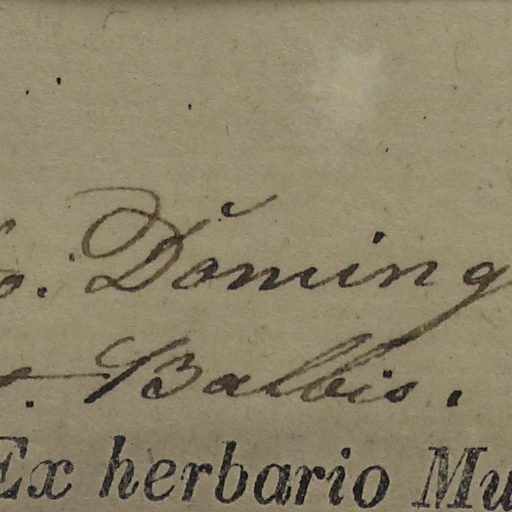 o. Doming
Balbis.
Ex herbario Mu